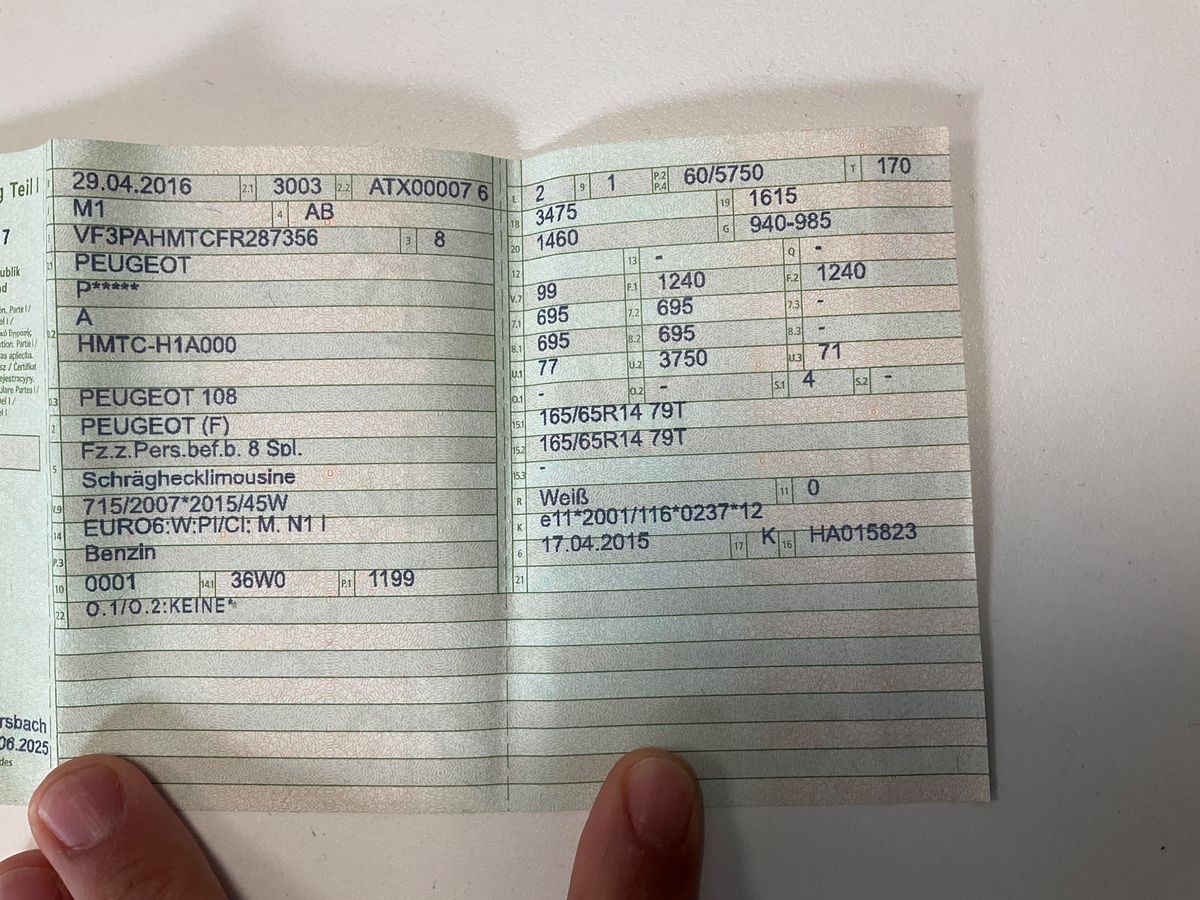 g Teil I
7
 publik
nd
on. Parte I /
el I /
ution. Parte I /
as apliecība.
sz / Certifikat
ejestracyjny.
ulare Partea I /
el I /
el I
rsbach
06.2025
des
29.04.2016 2.1 3003 2.2 ATX00007 6
M1 4 AB
VF3PAHMTCFR287356 3 8
PEUGEOT
P*****
A
HMTC-H1A000
PEUGEOT 108
2 PEUGEOT (F)
Fz.z.Pers.bef.b. 8 Spl.
5 Schräghecklimousine
V.9 715/2007*2015/45W
14 EURO6:W:PI/CI: M. N1 I
P.3 Benzin
10 0001 14.1 36W0 P.1 1199
22 O.1/O.2:KEINE*
L 2 9 1 P.2 P.4 60/5750 T 170
18 3475 19 1615
20 1460 G 940-985
12 13 - Q -
V.7 99 F.1 1240 F.2 1240
7.1 695 7.2 695 7.3 -
8.1 695 8.2 695 8.3 -
U.1 77 U.2 3750 U.3 71
O.1 - O.2 - S.1 4 S.2 -
15.1 165/65R14 79T
15.2 165/65R14 79T
15.3 -
R Weiß 11 0
K e11*2001/116*0237*12
6 17.04.2015 17 K 16 HA015823
21